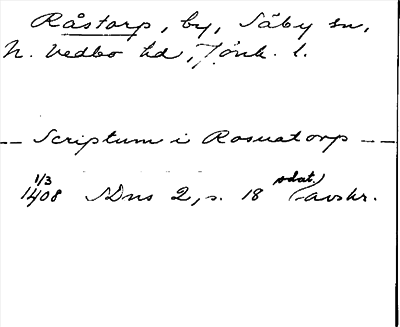 Råstorp, by, Säby sn,
N. Vedbo hd, Jönk. l.
-- Scriptum i Rosuatorp --
1/3 sdat.
1408 SDns 2, s. 18 (avskr.